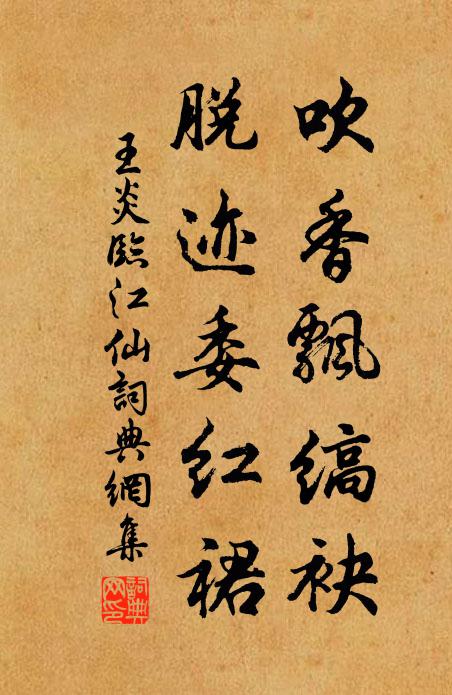 吹香飄縞袂
脱迹委红裙
王炎臨江仙詞典網集
詞典
网印